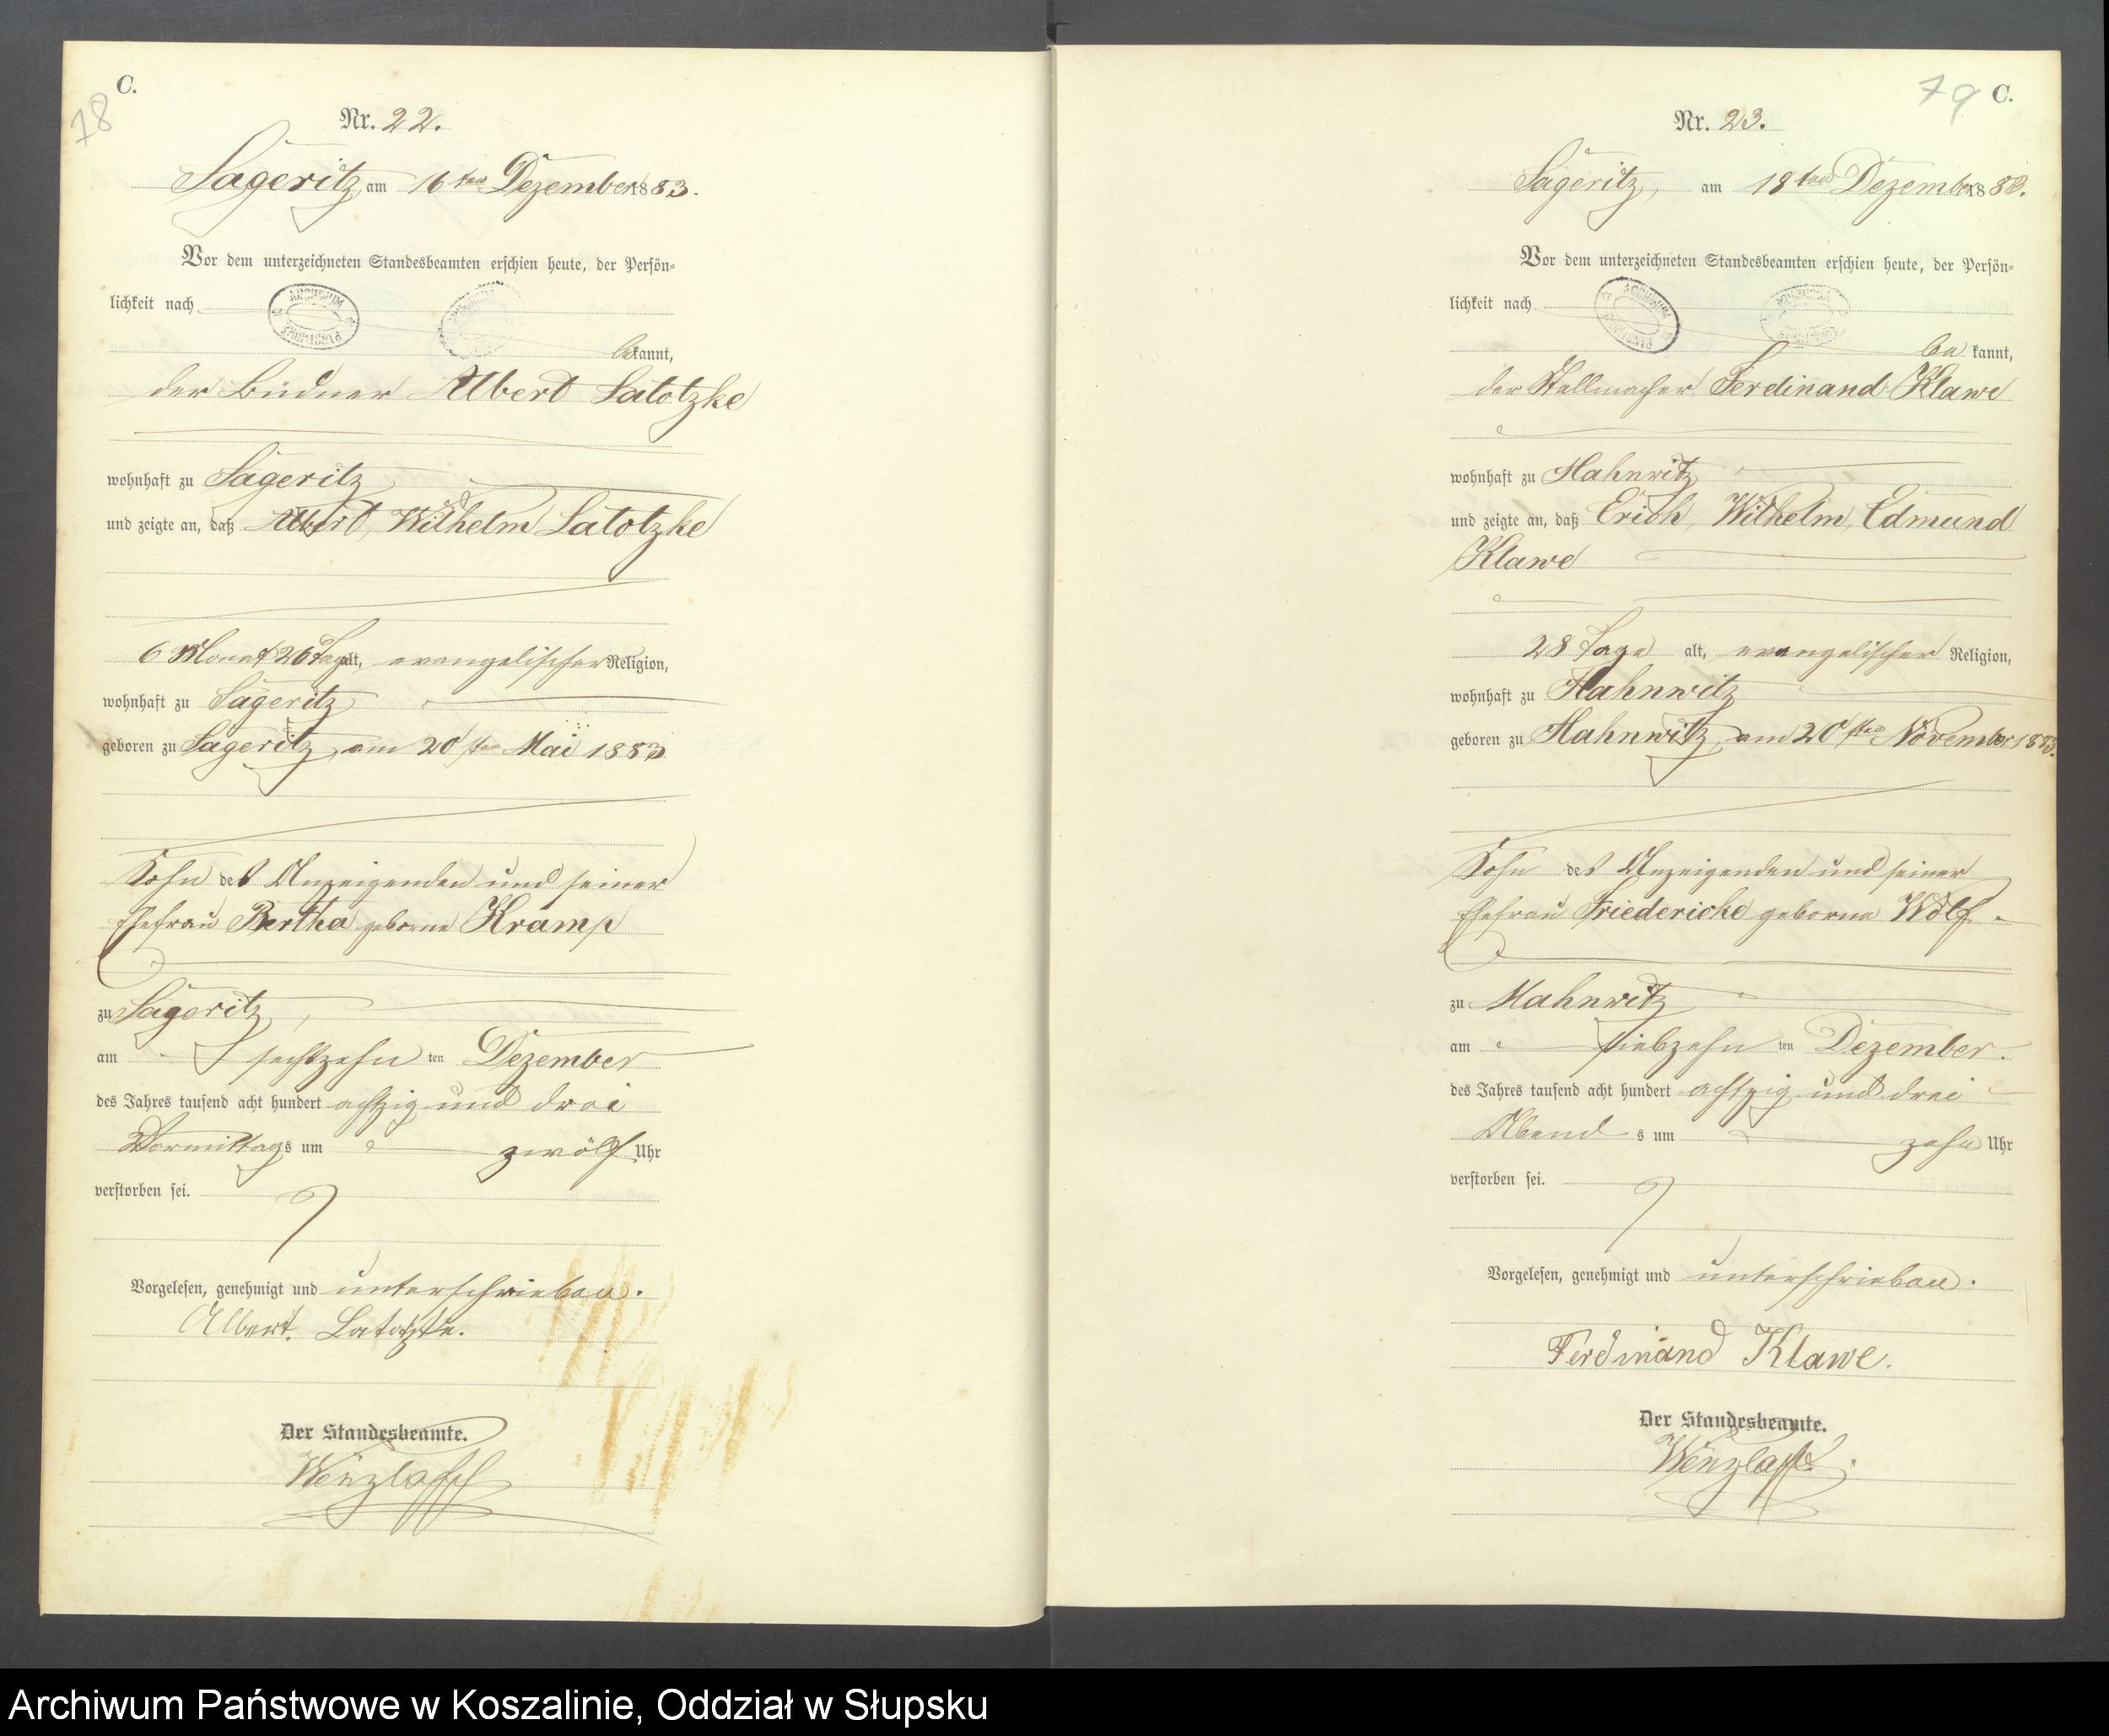 C.
78
Nr. 22.
Sageritz, am 16ten Dezember 1883.
Vor dem unterzeichneten Standesbeamten erschien heute, der Persön-
lichkeit nach
ARCHIWUM PAŃSTWOWE
bekannt,
der Büdner Albert Latotzke
wohnhaft zu Sageritz
und zeigte an, daß Albert, Wilhelm Latotzke
6 Monat 26 Tage alt, evangelischer Religion,
wohnhaft zu Sageritz
geboren zu Sageritz, am 20sten Mai 1883
Sohn des Anzeigenden und seiner
Ehefrau Bertha geborne Kramp
zu Sageritz,
am sechszehn ten Dezember
des Jahres tausend acht hundert achtzig und drei
Vormittags um zwölf Uhr
verstorben sei.
Vorgelesen, genehmigt und unterschrieben.
Albert. Latotzke.
Der Standesbeamte.
Wenzlaff
79 C.
Nr. 23.
Sageritz, am 18ten Dezember 1883.
Vor dem unterzeichneten Standesbeamten erschien heute, der Persön-
lichkeit nach
ARCHIWUM PAŃSTWOWE
be kannt,
der Stellmacher Ferdinand Klawe
wohnhaft zu Hahnwitz
und zeigte an, daß Erich, Wilhelm, Edmund
Klawe
28 Tage alt, evangelischer Religion,
wohnhaft zu Hahnwitz
geboren zu Hahnwitz, am 20sten November 1883.
Sohn des Anzeigenden und seiner
Ehefrau Friedericke geborne Wolf.
zu Mahnwitz
am siebzehn ten Dezember.
des Jahres tausend acht hundert achtzig und drei
Abend s um zehn Uhr
verstorben sei.
Vorgelesen, genehmigt und unterschrieben.
Ferdinand Klawe.
Der Standesbeamte.
Wenzlaff.
Archiwum Państwowe w Koszalinie, Oddział w Słupsku